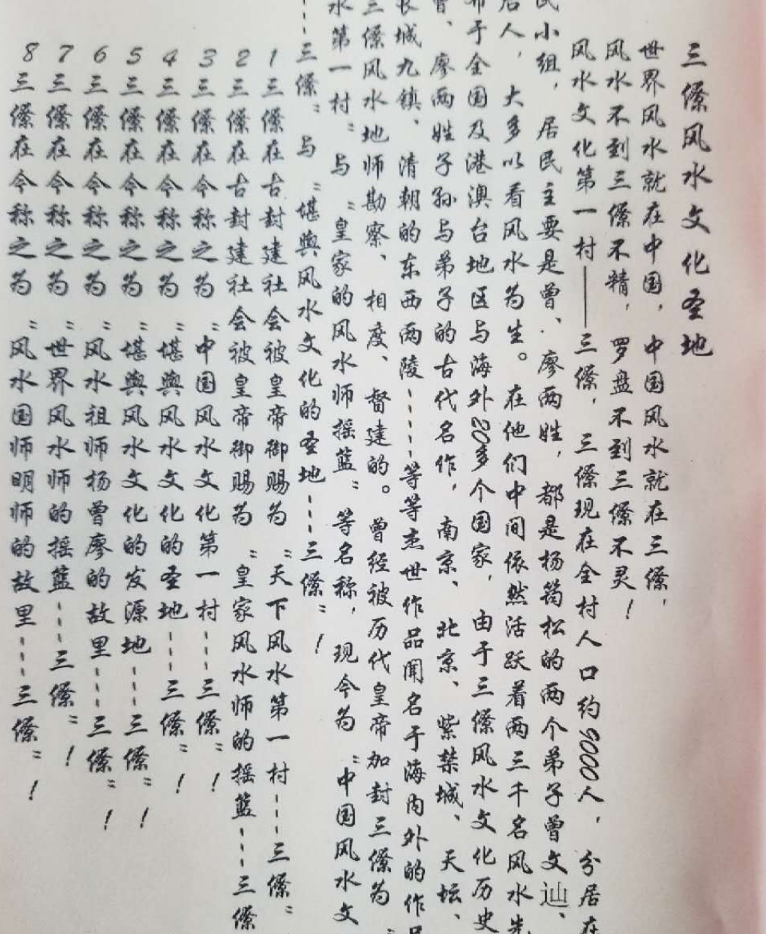 三僚风水文化圣地
世界风水就在中国，中国风水就在三僚，
风水不到三僚不精，罗盘不到三僚不灵！
风水文化第一村——三僚，三僚现在全村人口约9000人，分居在
民小组，居民主要是曾、廖两姓，都是杨筠松的两个弟子曾文辿、
后人，大多以看风水为生。在他们中间依然活跃着两三千名风水先
布于全国及港澳台地区与海外20多个国家，由于三僚风水文化历史
曾、廖两姓子孙与弟子的古代名作，南京、北京、紫禁城、天坛、
长城九镇、清朝的东西两陵……等等杰世作品闻名于海内外的作品
三僚风水地师勘察、相度、督建的。曾经被历代皇帝加封三僚为“
水第一村”与“皇家的风水师摇篮”等名称，现今为“中国风水文
……三僚”与“堪舆风水文化的圣地……三僚”！
1三僚在古封建社会被皇帝御赐为“天下风水第一村……三僚”
2三僚在古封建社会被皇帝御赐为“皇家风水师的摇篮……三僚
3三僚在今称之为“中国风水文化第一村……三僚”！
4三僚在今称之为“堪舆风水文化的圣地……三僚”！
5三僚在今称之为“堪舆风水文化的发源地……三僚”！
6三僚在今称之为“风水祖师杨曾廖的故里……三僚”！
7三僚在今称之为“世界风水师的摇篮……三僚”！
8三僚在今称之为“风水国师明师的故里……三僚”！